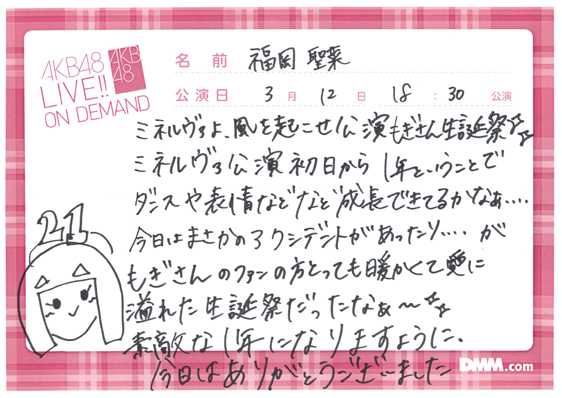 AKB48
LIVE!!
ON DEMAND
AKB
48
名前 福岡 聖菜
公演日 3月 12日 18:30 公演
ミネルヴァよ、風を起こせ公演もぎさん生誕祭
ミネルヴァ公演初日から1年ということで
ダンスや表情などなど成長できてるかなぁ....
今日はまさかのアクシデントがあったり....が
もぎさんのファンの方とっても暖かくて愛に
溢れた生誕祭だったなぁ〜
素敵な1年になりますように、
今日はありがとうございました
21
DMM.com